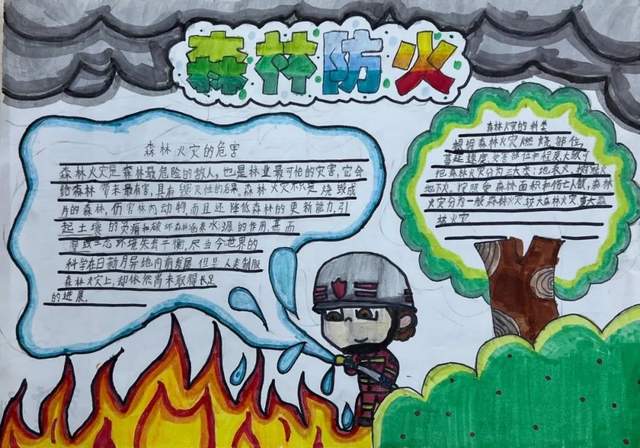 森林防火
森林火灾的危害
森林火灾是森林最危险的敌人,也是林业最可怕的灾害,它会
给森林带来最有害,具有毁灭性的后果,森林火灾不只是烧毁成
片的森林,伤害林内动物,而且还降低森林的更新能力,引
起土壤的贫瘠和破坏森林涵养水源的作用,甚而
导致生态环境失去平衡,尽当今世界的
科学在日新月异地向前发展,但是人类制服
森林火灾上,却依然尚未取得长足
的进展。
森林火灾的种类
根据森林火灾燃烧部位,
蔓延速度,灾害部位和程度大致可
把森林火灾分为三大类:地表火,树冠火
地下火,按照受森林面积和伤亡人数,森林
火灾分为一般森林火灾,较大森林火灾重大森
林火灾